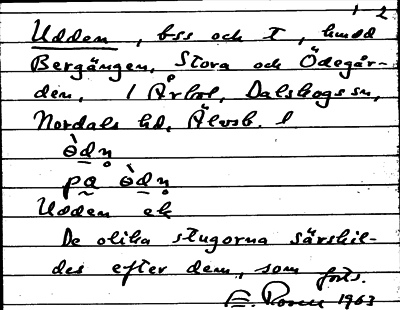 1 2
Udden, bss och T, hmdd
Bergängen, Stora och Ödegår-
den, 1 Årbol, Dalskogs sn,
Nordals hd, Älvsb. l
ò̀dn̥
pa ò̀dn̥
Udden ek
De olika stugorna särskil-
des efter dem, som forts.
1963